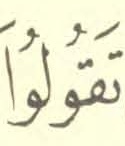 تَقُولُواَ